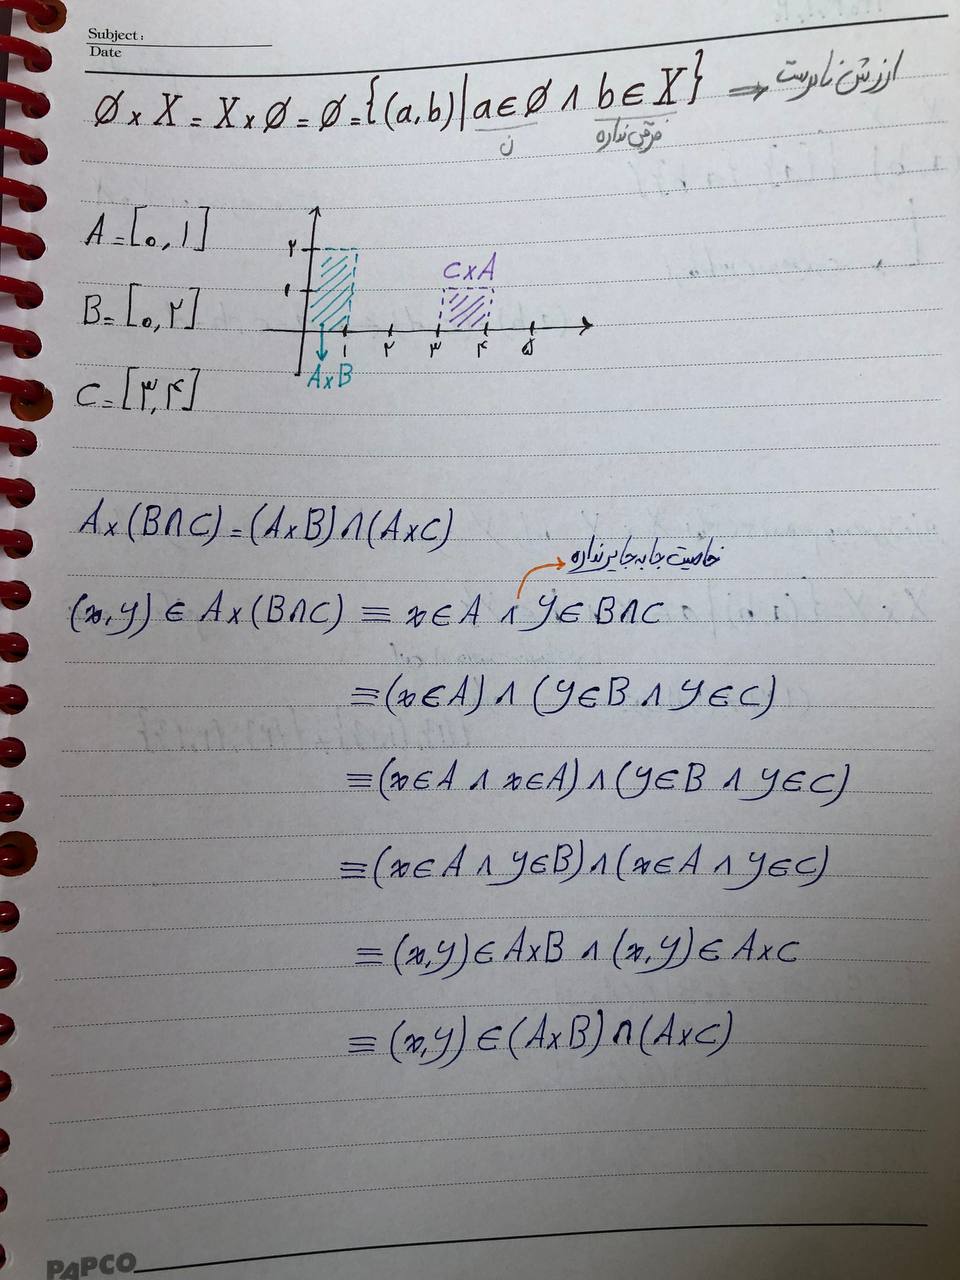 Subject:
Date
∅ × X = X × ∅ = ∅ = {(a,b) | a ∈ ∅ ∧ b ∈ X} ⇒ ارزش نادرست
ن فرقی نداره
A = [۰, ۱]
B = [۰, ۲]
C = [۳, ۴]
۲
۱
C×A
۱ ۲ ۳ ۴ ۵
A×B
A×(B∩C) = (A×B)∩(A×C)
خاصیت جا به جایی نداره
(x,y) ∈ A×(B∩C) ≡ x∈A ∧ y∈B∩C
≡ (x∈A) ∧ (y∈B ∧ y∈C)
≡ (x∈A ∧ x∈A) ∧ (y∈B ∧ y∈C)
≡ (x∈A ∧ y∈B) ∧ (x∈A ∧ y∈C)
≡ (x,y)∈A×B ∧ (x,y)∈A×C
≡ (x,y)∈(A×B)∩(A×C)
PAPCO